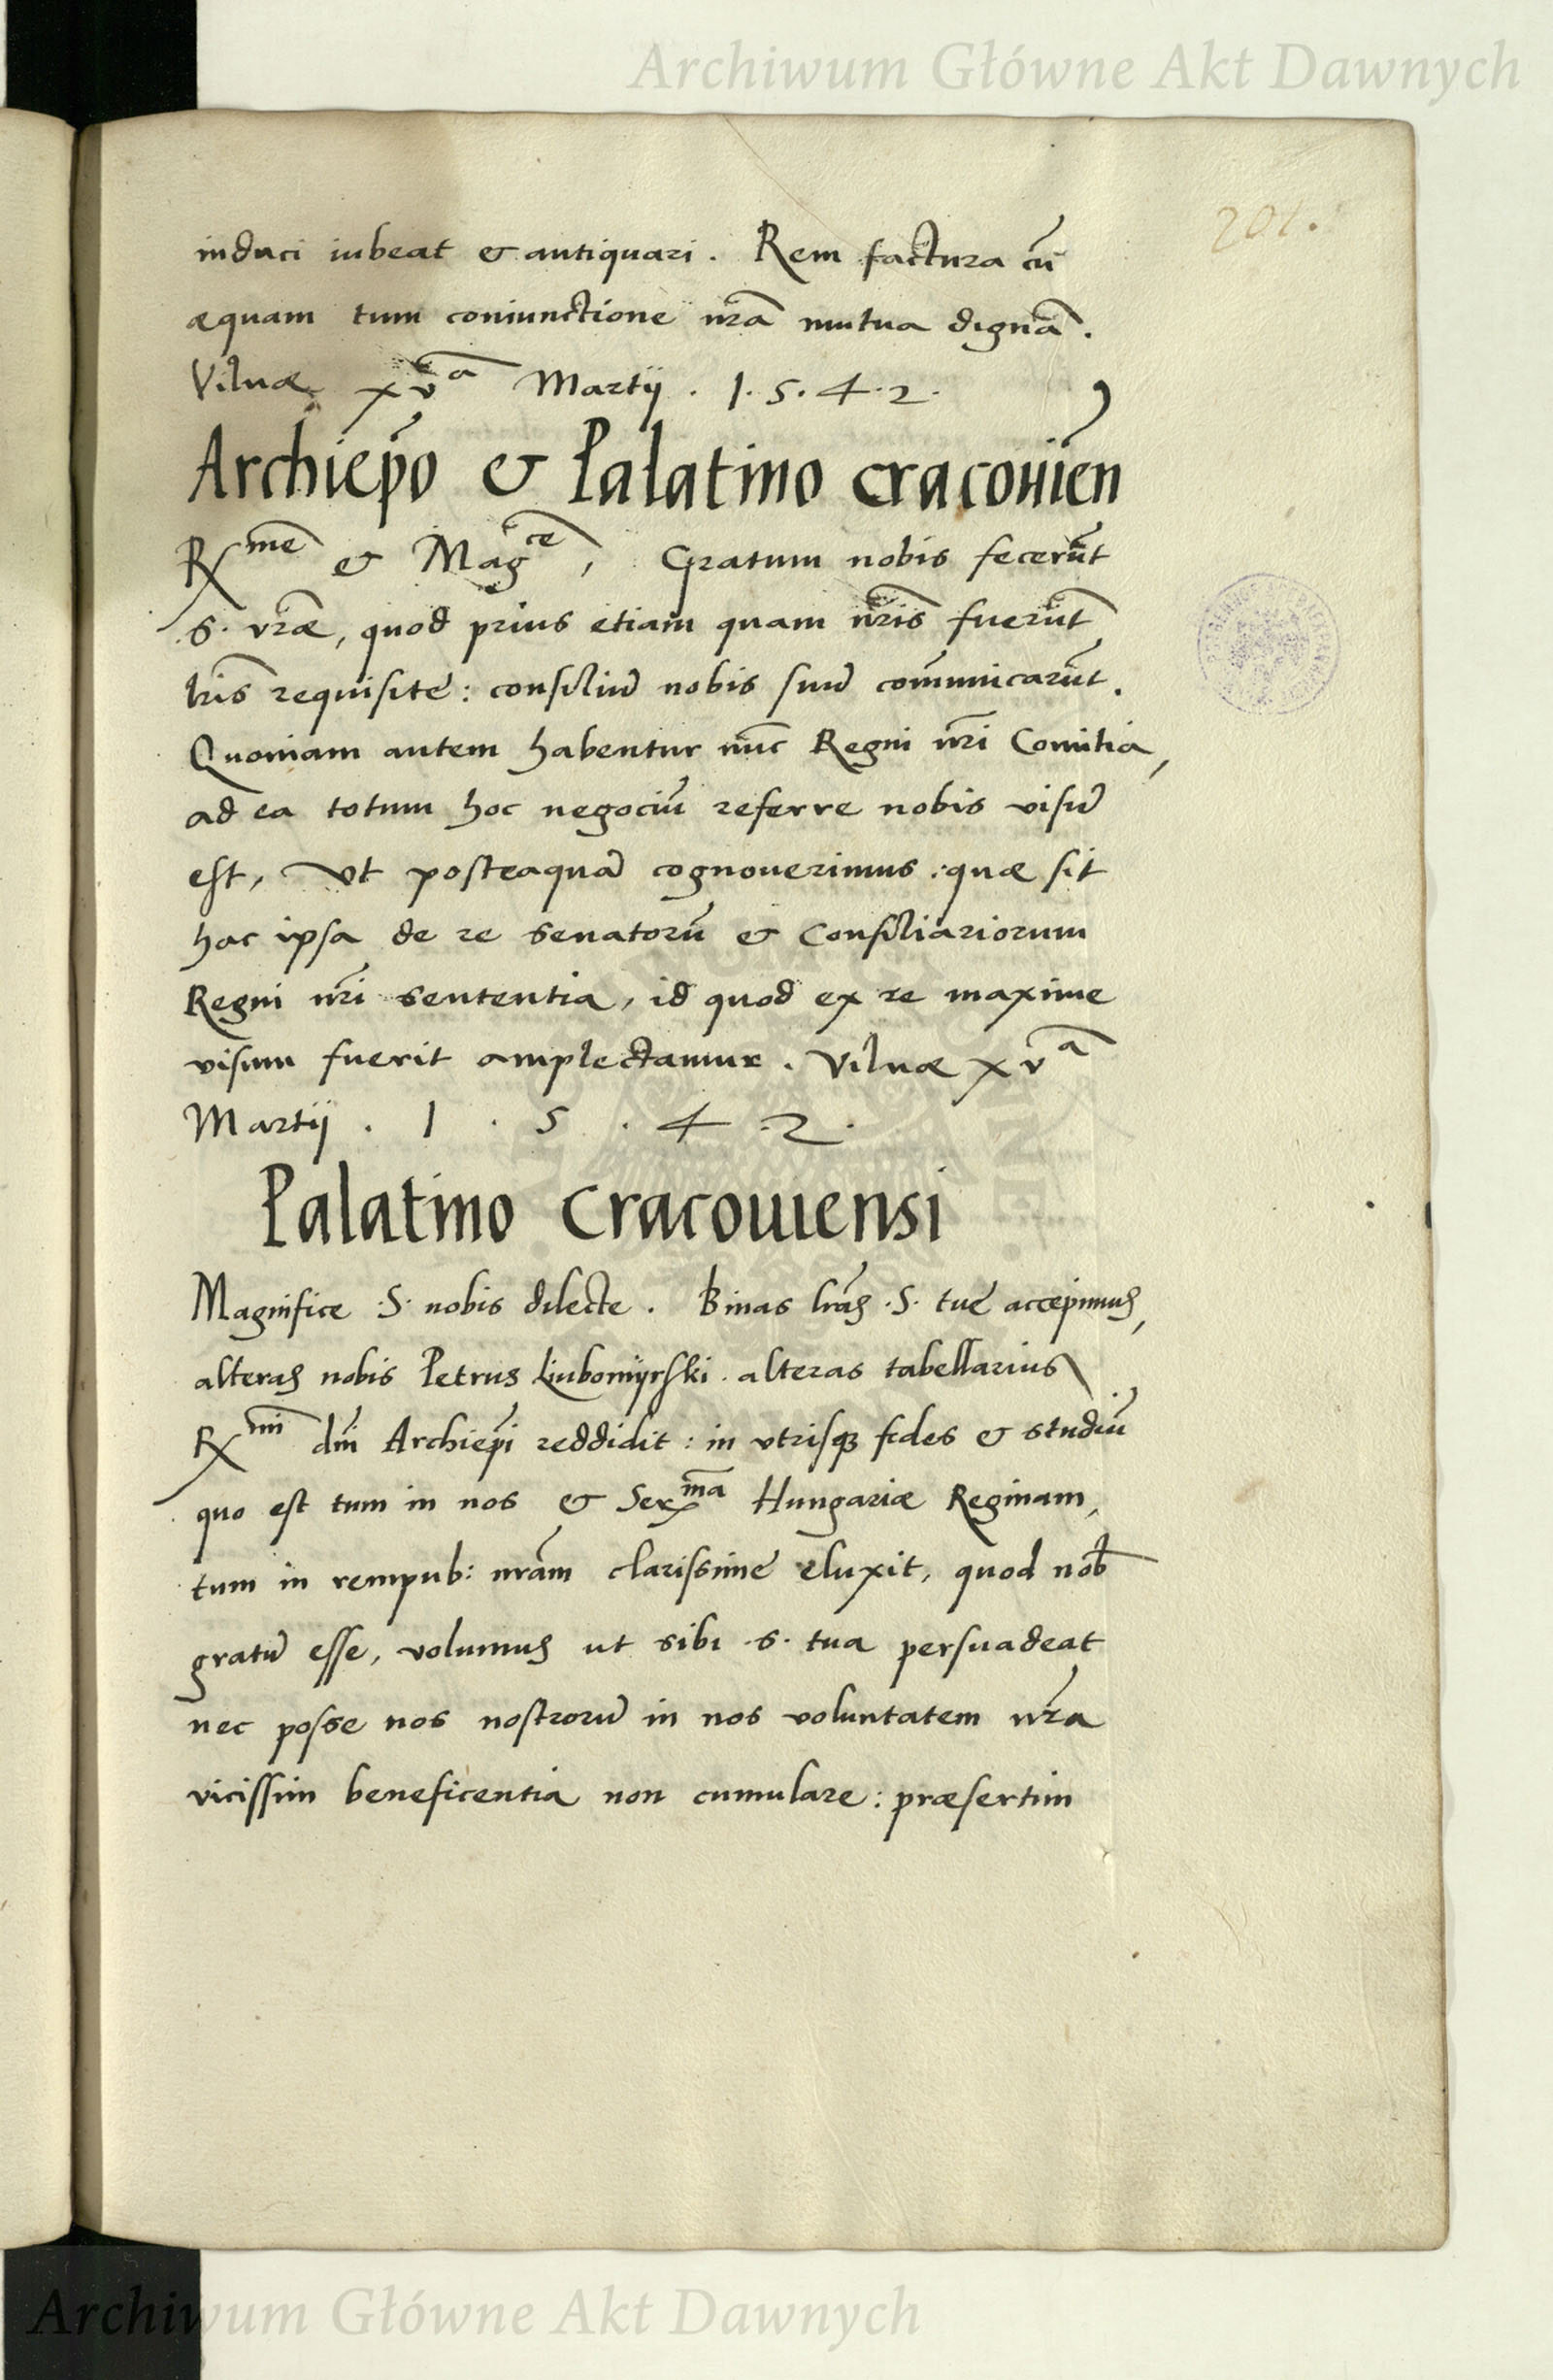 Archiwum Główne Akt Dawnych
201.
induci iubeat & antiquari. Rem factura cũ
æquam tum coniunctione nrã mutua dignã.
Vilnæ xvᵃ Martij. 1.5.4.2.
Archiepõ & Palatino Cracovień
Rᵐᵉ & Magᶜᵉ, Gratum nobis fecerũt
S. vræ, quod prius etiam quam nris fuerũt
lris requisite: consiliũ nobis suũ com̃unicarũt.
Quoniam autem habentur nũc Regni nri Comitia,
ad ea totum hoc negociũ referre nobis visũ
est, Vt posteaquã cognouerimus: quæ sit
hac ipsa de re Senatorũ & Consiliariorum
Regni nri sententia, id quod ex re maxime
visum fuerit amplectamur. Vilnæ xvᵃ
Martij. 1.5.4.2.
Palatino Cracouiensi
Magnifice .S. nobis dilecte. Binas lras .S. tuę accepimus,
alteras nobis Petrus Liubomijrski. alteras tabellarius
Rᵐⁱ dni Archiepi reddidit: in vtrisq; fides & studiũ
quo est tum in nos & Serᵐᵃ Hungariæ Reginam,
tum in rempub: nram clarissime eluxit, quod nob
gratũ esse, volumus ut sibi .S. tua persuadeat
nec posse nos nostrorũ in nos voluntatem nra
vicissim beneficentia non cumulare: præsertim
Archiwum Główne Akt Dawnych